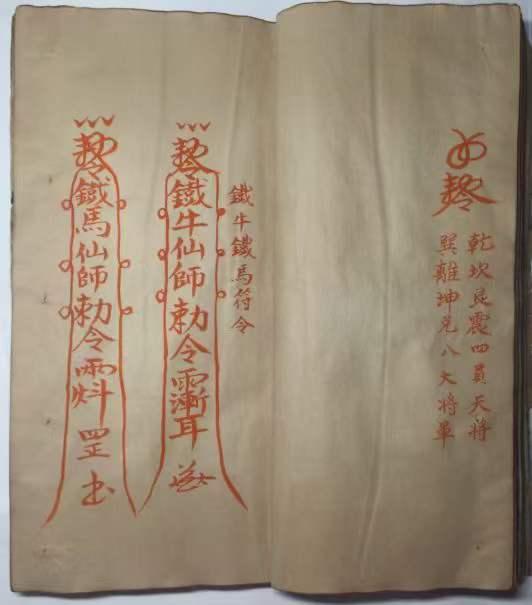 乾坎艮震四員天將
巽離坤兌八大將軍
鐵牛鐵馬符令
鐵牛仙師勅令
鐵馬仙師勅令